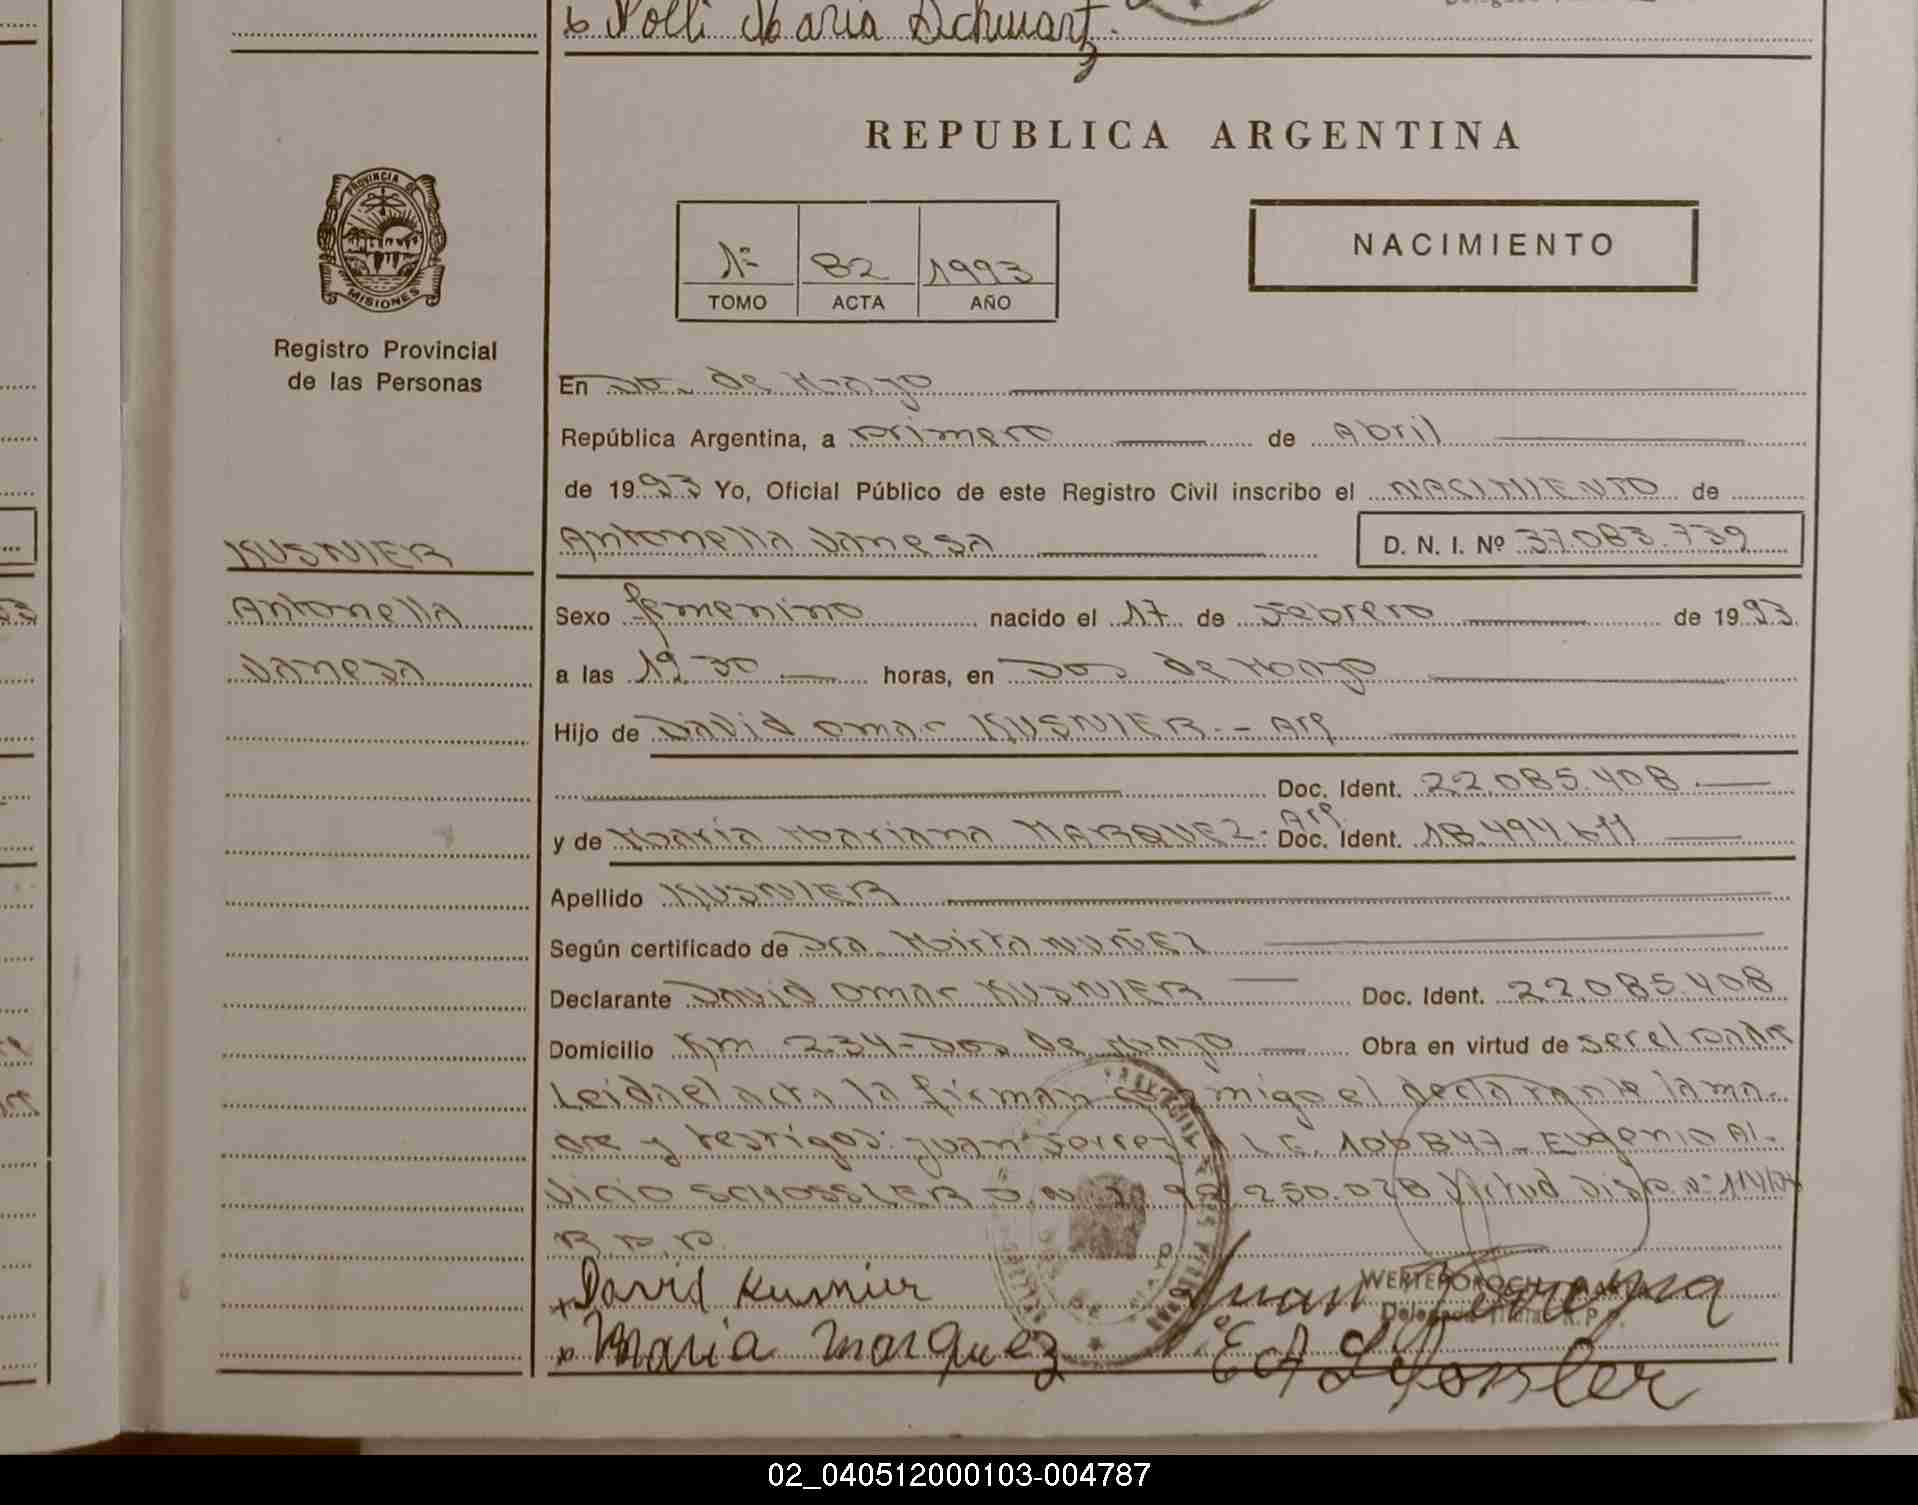 x Nolli Maria Schwartz.
REPUBLICA ARGENTINA
PROVINCIA DE
MISIONES
Registro Provincial
de las Personas
1º 82 1993
TOMO ACTA AÑO
NACIMIENTO
En Dos de Mayo
República Argentina, a primero de Abril
de 1993 Yo, Oficial Público de este Registro Civil inscribo el NACIMIENTO de
KUSNIER
Antonella Vanesa D. N. I. Nº 37.083.739
Antonella
Vanesa
Sexo femenino nacido el 17 de Febrero de 1993
a las 19 30 horas, en Dos de Mayo
Hijo de David Omar KUSNIER.- Arg
Doc. Ident. 22.085.408
y de Maria Mariana MARQUEZ- Arg Doc. Ident. 18.494.611
Apellido KUSNIER
Según certificado de Dra. Mirta NUÑEZ
Declarante David Omar KUSNIER Doc. Ident. 22.085.408
Domicilio Km 234-Dos de Mayo Obra en virtud de ser el padre
Leida el acta la firman conmigo el declarante la ma-
dre y testigos: Juan L.E. 106847- Eugenio Al-
SCHOSSLER D.N.I. 250.028 Virtud Disp. Nº
R.P.P.
x David Kusnier
x Maria Marquez
Juan Ferreyra
E A Schossler
Delegado Titular R.P.P.
02_040512000103-004787